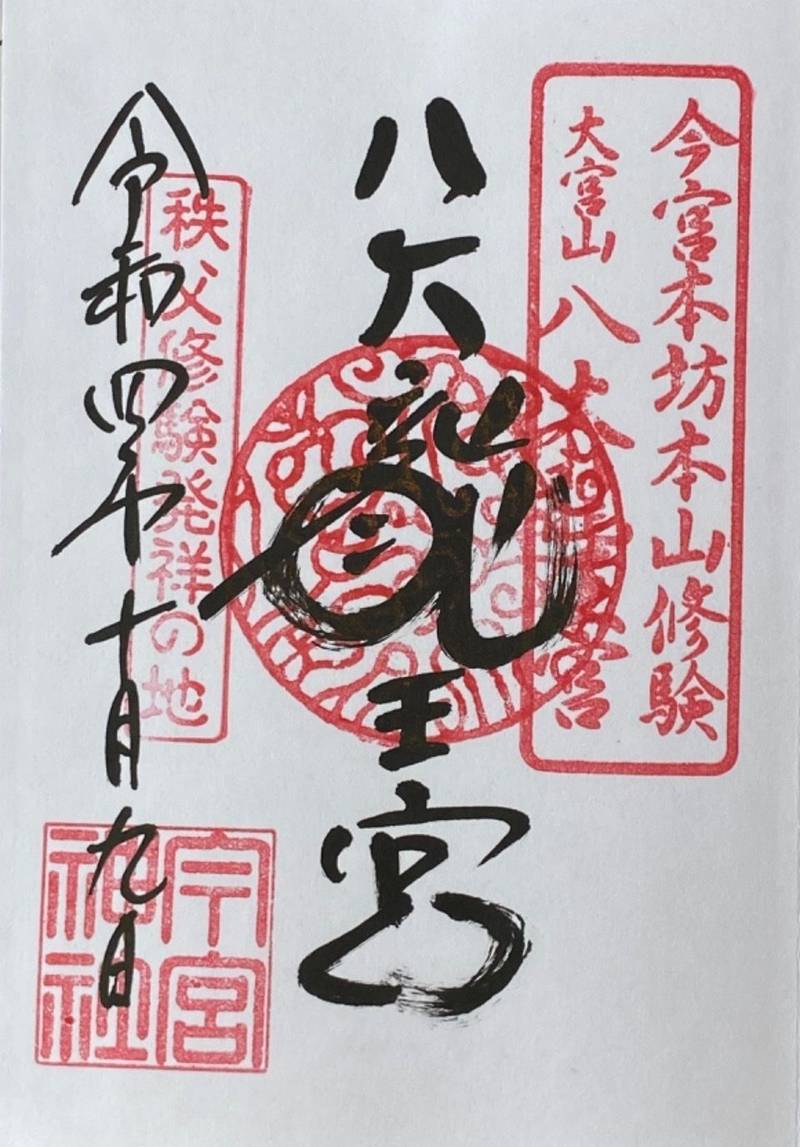 今宮本坊本山修験
大宮山八宮
八大龍王宮
秩父修験発祥の地
令和四年十月九日
今宮神社